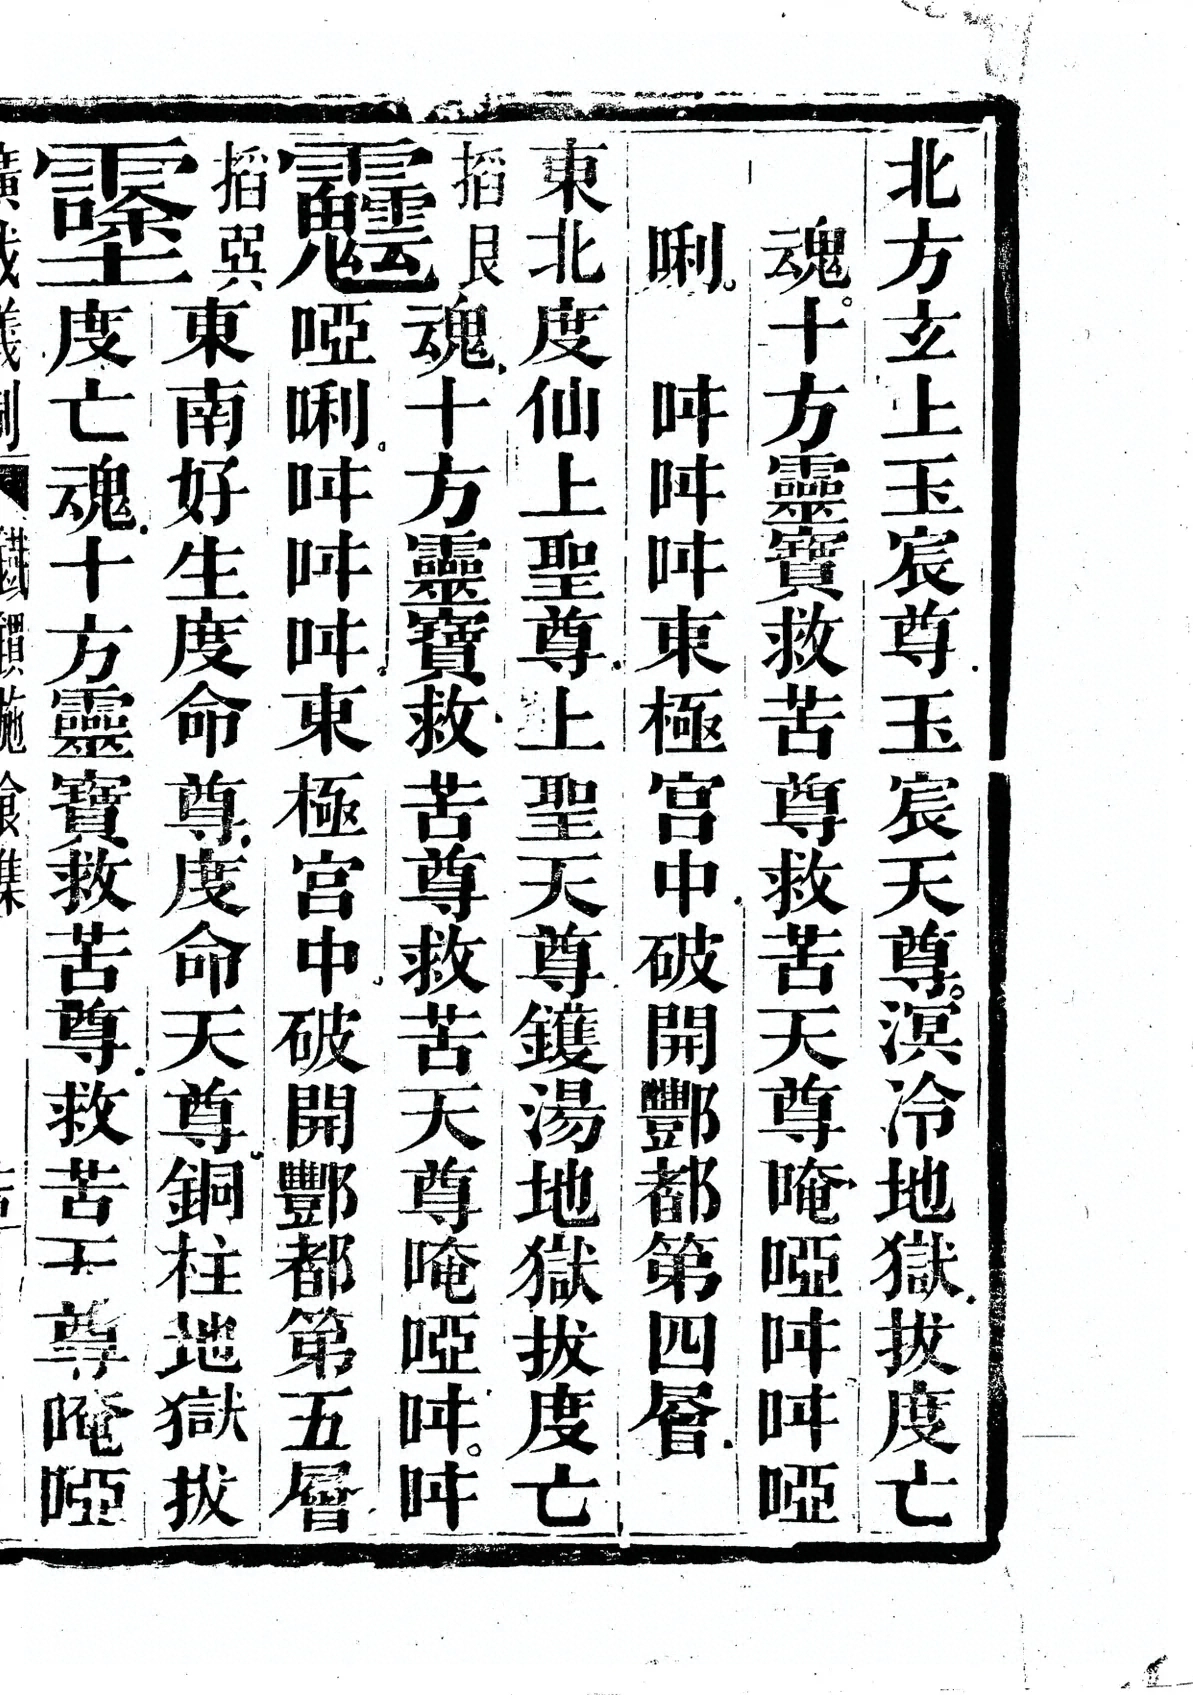 北方玄上玉宸尊玉宸天尊溟冷地獄拔度亡
魂十方靈寶救苦尊救苦天尊唵啞吽吽啞
唎 吽吽吽東極宮中破開酆都第四層
東北度仙上聖尊上聖天尊鑊湯地獄拔度亡
搯艮
魂十方靈寶救苦尊救苦天尊唵啞吽吽
啞唎吽吽吽東極宮中破開酆都第五層
搯巽
東南好生度命尊度命天尊銅柱地獄拔
度亡魂十方靈寶救苦尊救苦天尊唵啞
廣成儀制 鐵鑵施食集